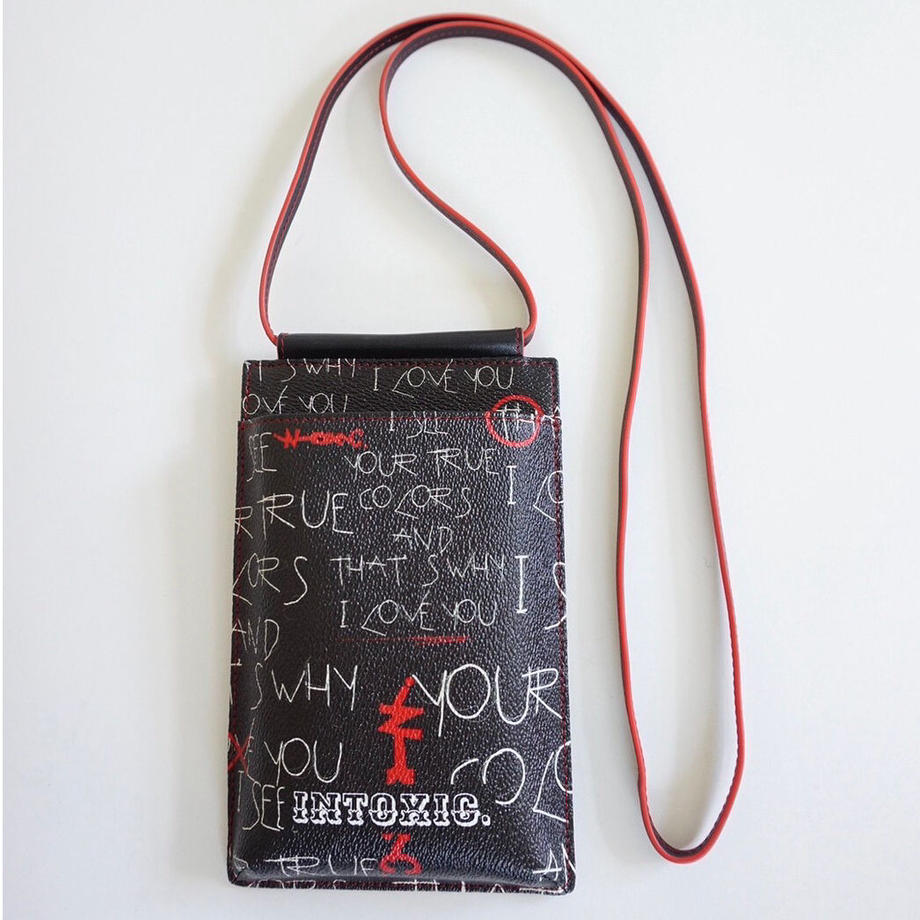 T'S WHY
I LOVE YOU
OVE YOU
I SEE
SEE
YOUR TRUE
I LO
TRUE
COLORS
AND
ORS
THAT'S WHY
I S
I LOVE YOU
AND
S WHY
YOUR
YOU
COLO
I SEE
INTOXIC.
TRUE